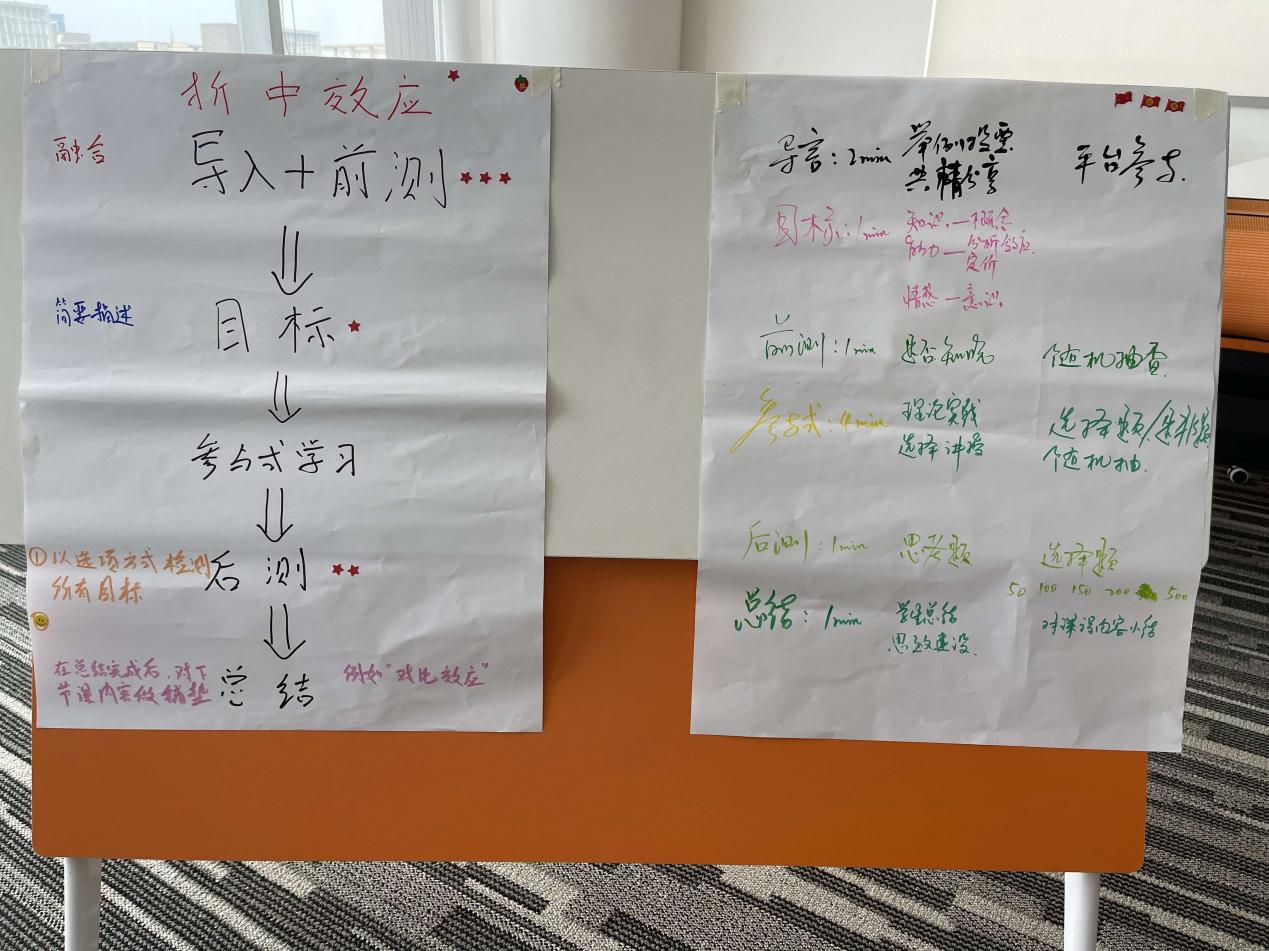 折中效应
融合
导入+前测
简要描述
目标
参与式学习
①以选项方式检测
所有目标
后测
在总结完成后,对下
节课内容做铺垫
总结
例如"对比效应"
导言:2min 举例投票 平台参与.
共情分享
目标:1min 知识.—概念
能力—分析效应.
定价
情感—意识.
前测:1min 是否知晓 个随机抽查.
参与式:4min 理论实践 选择题/是非题
选择讲授 个随机抽.
后测:1min 思考题 选择题
50 100 150 200 500
总结:1min 学生总结 对课谓内容小结
思政建设.